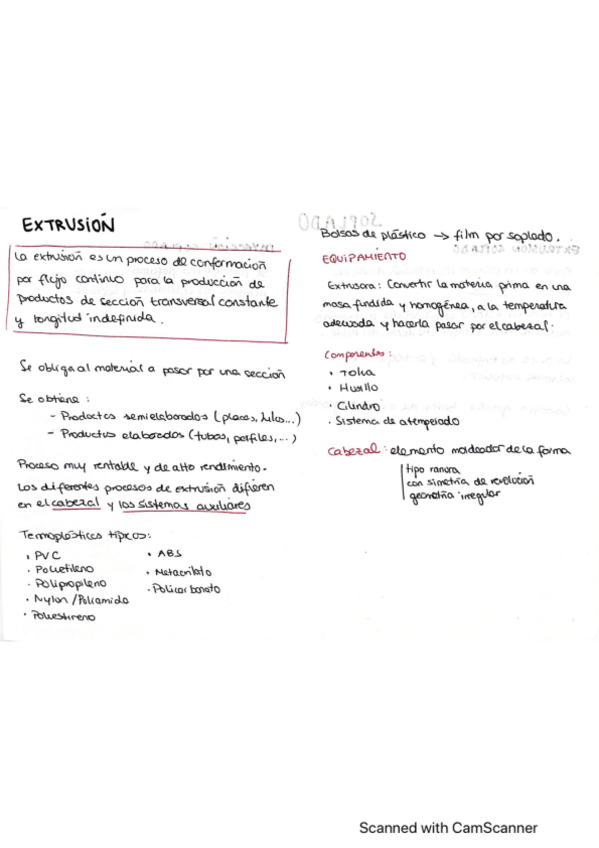 EXTRUSIÓN
La extrusión es un proceso de conformación
por flujo continuo para la producción de
productos de sección transversal constante
y longitud indefinida.
Se obliga al material a pasar por una sección
Se obtiene :
- Productos semielaborados (placas, hilos...)
- Productos elaborados (tubos, perfiles,...)
Proceso muy rentable y de alto rendimiento.
Los diferentes procesos de extrusión difieren
en el cabezal y los sistemas auxiliares
Termoplásticos típicos:
· PVC
· Polietileno
· Polipropileno
· Nylon /Poliamida
· Poliestireno
· ABS
· Metacrilato
· Policarbonato
Bolsas de plástico → film por soplado.
EQUIPAMIENTO
Extrusora: Convertir la materia prima en una
masa fundida y homogénea, a la temperatura
adecuada y hacerla pasar por el cabezal.
Componentes:
· Tolva
· Husillo
· Cilindro
· Sistema de atemperado
Cabezal: elemento moldeador de la forma
tipo ranura
con simetría de revolución
geometría irregular
Scanned with CamScanner